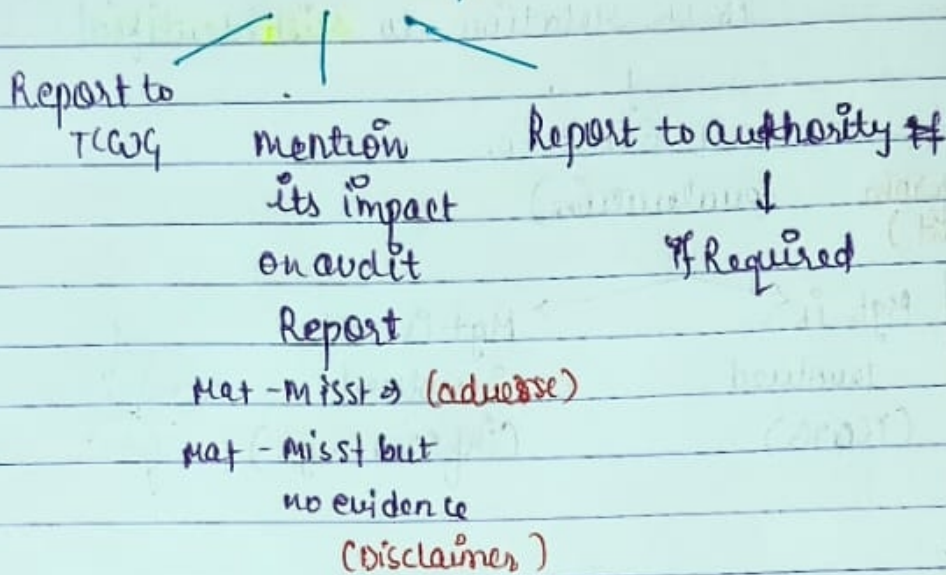 Report to
TCWG
mention
its impact
on audit
Report
Mat - Misst → (aduerse)
Mat - Misst but
no evidence
(Disclaimer)
Report to authority
↓
If Required